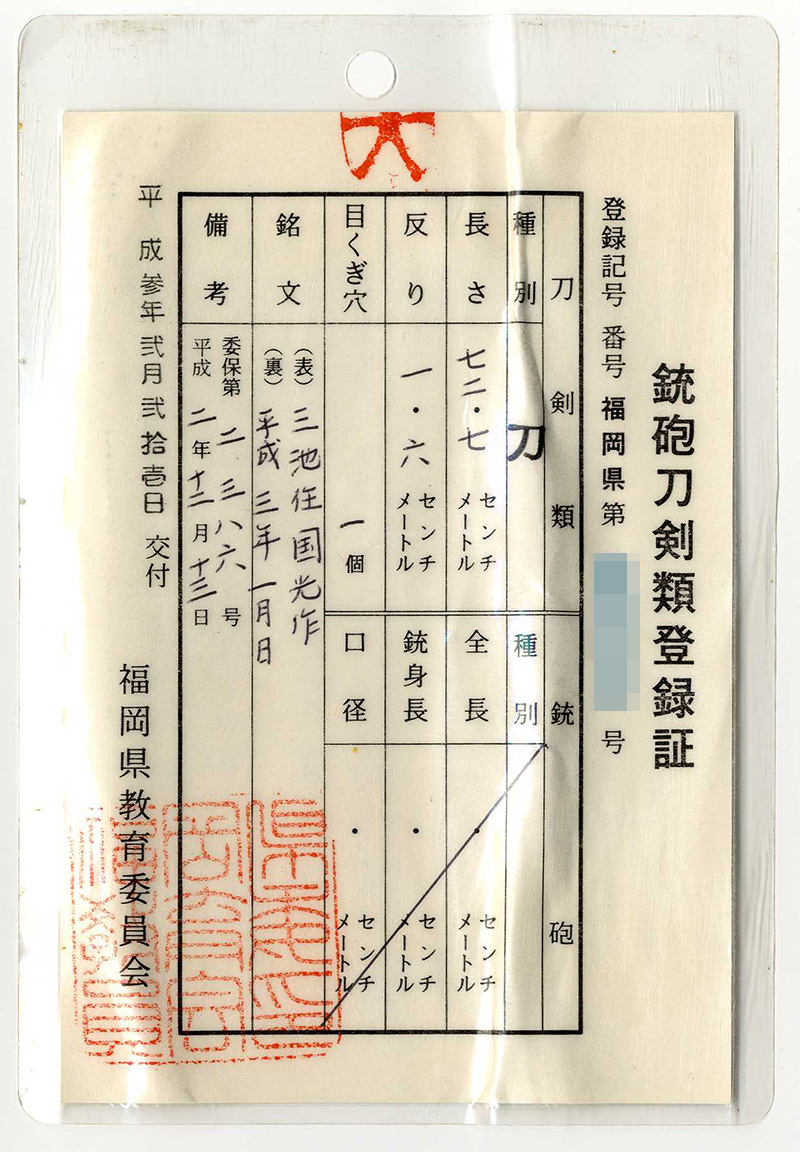 銃砲刀剣類登録証
登録記号番号 福岡県第 号
刀剣類
種別 刀
長さ 七二・七 センチメートル
反り 一・六 センチメートル
目くぎ穴 一個
銘文 (表) 三池住国光作
(裏) 平成三年一月日
備考 委保第 二三八六 号
平成 二年十二月十三日
銃砲
種別
全長 ・ センチメートル
銃身長 ・ センチメートル
口径 ・ センチメートル
平成参年弐月弐拾壱日 交付
福岡県教育委員会